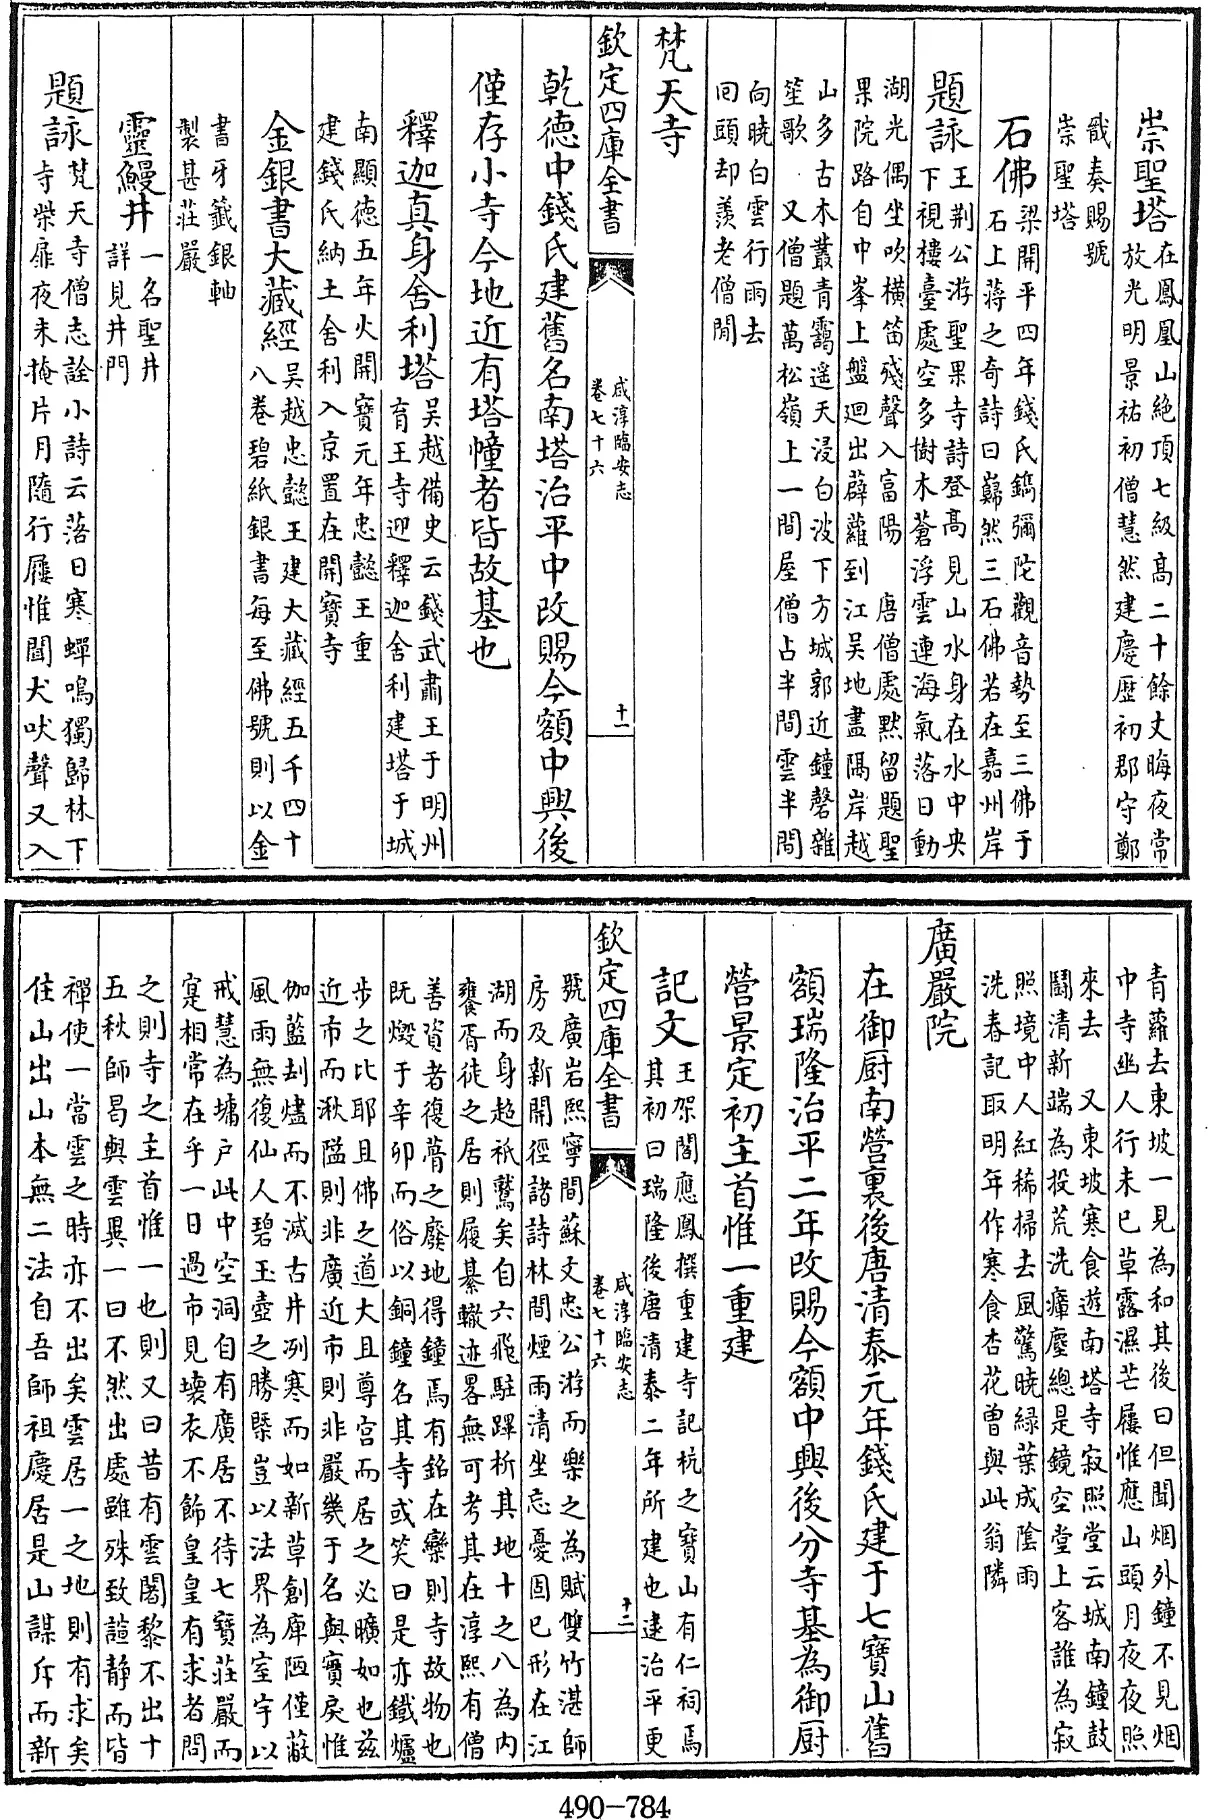 崇聖塔在鳳凰山絶頂七級高二十餘丈晦夜常
放光明景祐初僧慧然建慶歴初郡守鄭
戩奏賜號
崇聖塔
石佛梁開平四年錢氏鐫彌陀觀音勢至三佛于
石上蔣之奇詩曰巋然三石佛若在嘉州岸
題詠王荆公游聖果寺詩登髙見山水身在水中央
下視樓臺處空多樹木蒼浮雲連海氣落日動
湖光偶坐吹横笛殘聲入富陽　唐僧處黙留題聖
果院路自中峯上盤迴出薜蘿到江吴地盡隔岸越
山多古木叢青靄遥天浸白波下方城郭近鐘磬雜
笙歌　又僧題萬松嶺上一間屋僧占半間雲半間
向曉白雲行雨去
回頭却羨老僧閒
梵天寺
欽定四庫全書
咸淳臨安志
卷七十六
十一
乾德中錢氏建舊名南塔治平中改賜今額中興後
僅存小寺今地近有塔幢者皆故基也
釋迦真身舍利塔吴越備史云錢武肅王于明州
育王寺迎釋迦舍利建塔于城
南顯德五年火開寶元年忠懿王重
建錢氏納土舍利入京置在開寶寺
金銀書大藏經吴越忠懿王建大藏經五千四十
八巻碧紙銀書每至佛號則以金
書牙籤銀軸
製甚莊嚴
靈鰻井一名聖井
詳見井門
題詠梵天寺僧志詮小詩云落日寒蟬鳴獨歸林下
寺柴扉夜未掩片月隨行屨惟聞犬吠聲又入
青蘿去東坡一見為和其後曰但聞烟外鐘不見烟
中寺幽人行未已草露濕芒屨惟應山頭月夜夜照
來去　又東坡寒食遊南塔寺寂照堂云城南鐘鼓
鬭清新端為投荒洗瘴塵總是鏡空堂上客誰為寂
照境中人紅稀掃去風驚曉緑葉成陰雨
洗春記取明年作寒食杏花曾與此翁隣
廣嚴院
在御厨南營裏後唐清泰元年錢氏建于七寶山舊
額瑞隆治平二年改賜今額中興後分寺基為御厨
營景定初主首惟一重建
記文王架閣應鳳撰重建寺記杭之寶山有仁祠焉
其初曰瑞隆後唐清泰二年所建也逮治平更
欽定四庫全書
咸淳臨安志
卷七十六
十二
號廣岩熙寧間蘇文忠公游而樂之為賦雙竹湛師
房及新開徑諸詩林間煙雨清坐忘憂固已形在江
湖而身超祇鷲矣自六飛駐蹕析其地十之八為内
饔胥徒之居則履綦轍迹畧無可考其在淳熙有僧
善資者復菁之廢地得鐘焉有銘在欒則寺故物也
既燬于辛卯而俗以銅鐘名其寺或笑曰是亦鐵爐
步之比耶且佛之道大且尊宫而居之必曠如也兹
近市而湫隘則非廣近市則非嚴幾于名與實戾惟
伽藍刦燼而不滅古井冽寒而如新草創庫陋僅蔽
風雨無復仙人碧玉壺之勝槩豈以法界為室宇以
戒慧為墉户此中空洞自有廣居不待七寶莊嚴而
寔相常在乎一日過市見壊衣不飾皇皇有求者問
之則寺之主首惟一也則又曰昔有雲闍黎不出十
五秋師曷與雲異一曰不然出處雖殊致諠静而皆
禪使一當雲之時亦不出矣雲居一之地則有求矣
住山出山本無二法自吾師祖慶居是山謀斥而新
490-784